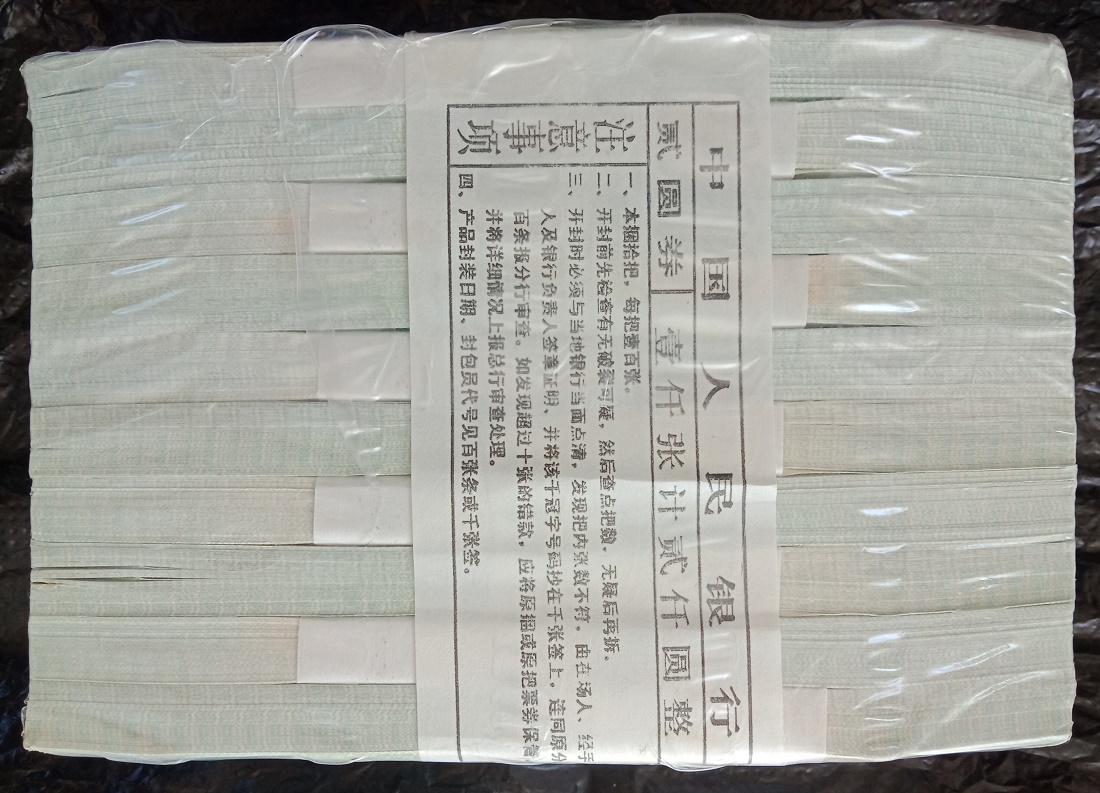 中国人民银行
贰圆券 壹仟张计贰仟圆整
注意事项
一、本捆拾把，每把壹百张。
二、开封前先检查有无破裂可疑，然后查点把数，无疑后再拆。
三、开封时必须与当地银行当面点清，发现把内张数不符，由在场人、经手
人及银行负责人签章证明、并将该千冠字号码抄在千张签上，连同原分
百条报分行审查。如发现超过十张的错款，应将原捆或原把票券保管
并将详细情况上报总行审查处理。
四、产品封装日期、封包员代号见百张条或千张签。